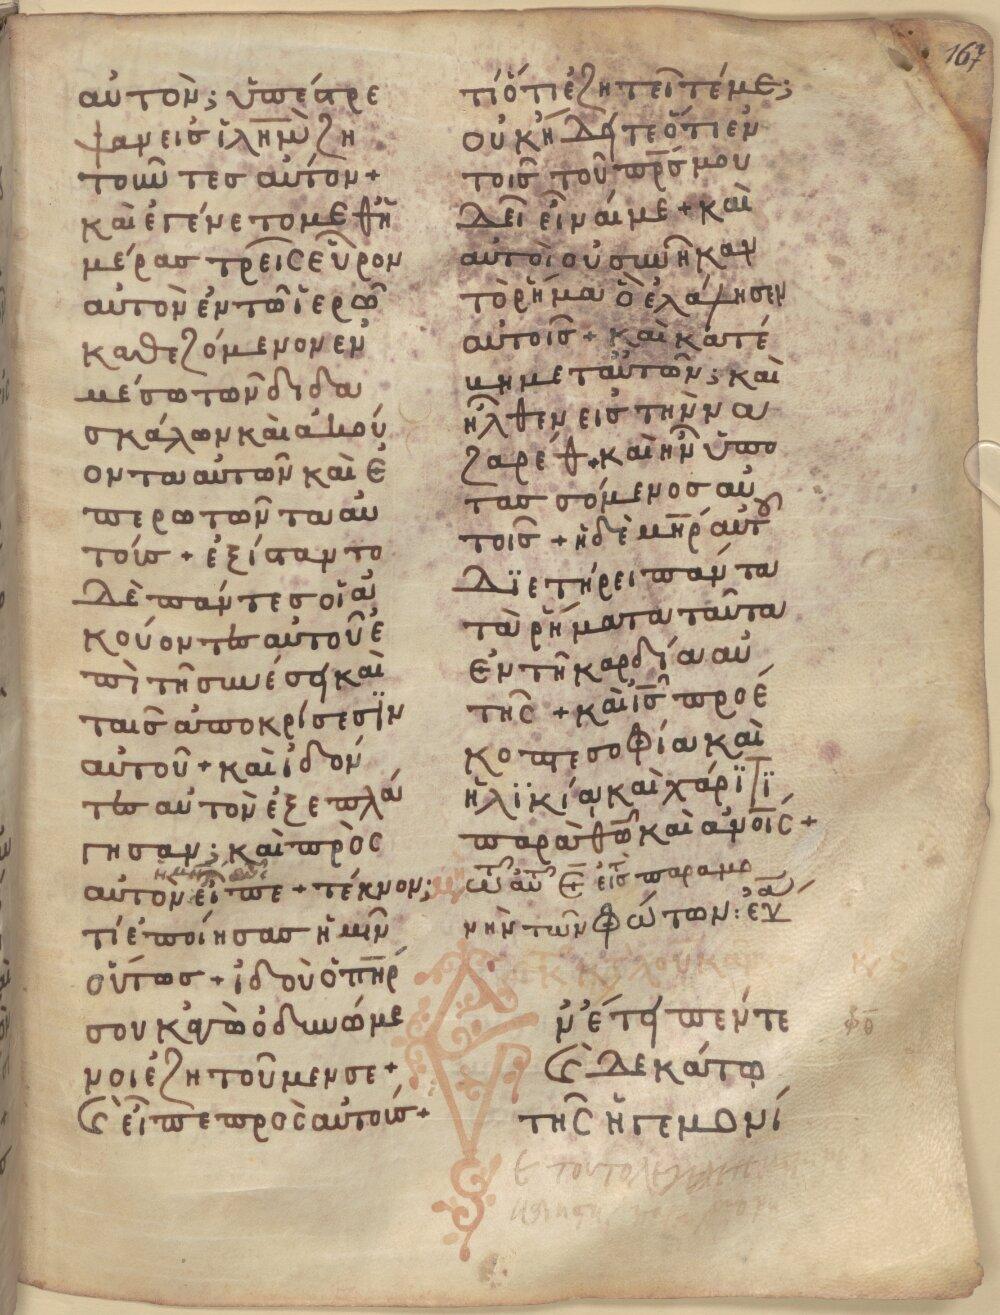 167
αὐτὸν; ὑπέστρε
ψαν εἰσ ἰλῆμ ζη
τοῦντεσ αὐτόν +
καὶ ἐγένετο μεθ ἡ
μέρασ τρεῖς εὗρον
αὐτὸν ἐν τῶ ἱερῶ
καθεζόμενον ἐν
μέσω τῶν διδα
σκάλων καὶ ἀκού
οντα αὐτῶν καὶ ἐ
περωτῶντα αὐ
τοίσ + ἐξίσταντο
δὲ πάντεσ οἱ ἀ
κούοντεσ αὐτοῦ ἐ
πὶ τῆ συνέσει καὶ
ταῖσ ἀποκρίσεσϊν
αὐτοῦ + καὶ ἰδόν
τεσ αὐτὸν ἐξεπλά
γησαν; καὶ πρὸς
αὐτὸν εἶπε + τέκνον;
τί ἐποίησασ ἡμῖν
οὕτωσ + ἰδοὺ ὁ πηρ
σου κἀγὼ ὀδυνώμε
νοι ἐζητοῦμεν σε +
καὶ εἶπε πρὸς αὐτούσ +
τί ὅτι ἐζητεῖτέ με;
οὐκ ἤδητε ὅτι ἐν
τοῖσ τοῦ πρσ μου
δεῖ εἶναί με + καὶ
αὐτοὶ οὐ συνῆκαν
τὸ ρῆμα ὃ ἐλάλησεν
αὐτοῖσ + καὶ κατέ
βη μετ αὐτῶν; καὶ
ἦλθεν εἰσ τὴν να
ζαρέθ + καὶ ἦν ὑπο
τασσόμενοσ αὐ
τοῖσ + ἡ δὲ μηρ αὐτοῦ
δϊετήρει πάντα
τὰ ρήματα ταῦτα
ἐν τῆ καρδία αὐ
τῆς + καὶ ισ προέ
κοπτε σοφία καὶ
ἡλϊκία καὶ χάρϊτϊ
παρὰ θῶ καὶ ανοις +
εἰσ παραμο
νὴν τῶν φώτων: ἐκ
ἐν έτει πεντε
καὶ δεκάτω
τῆς ἡγεμονί